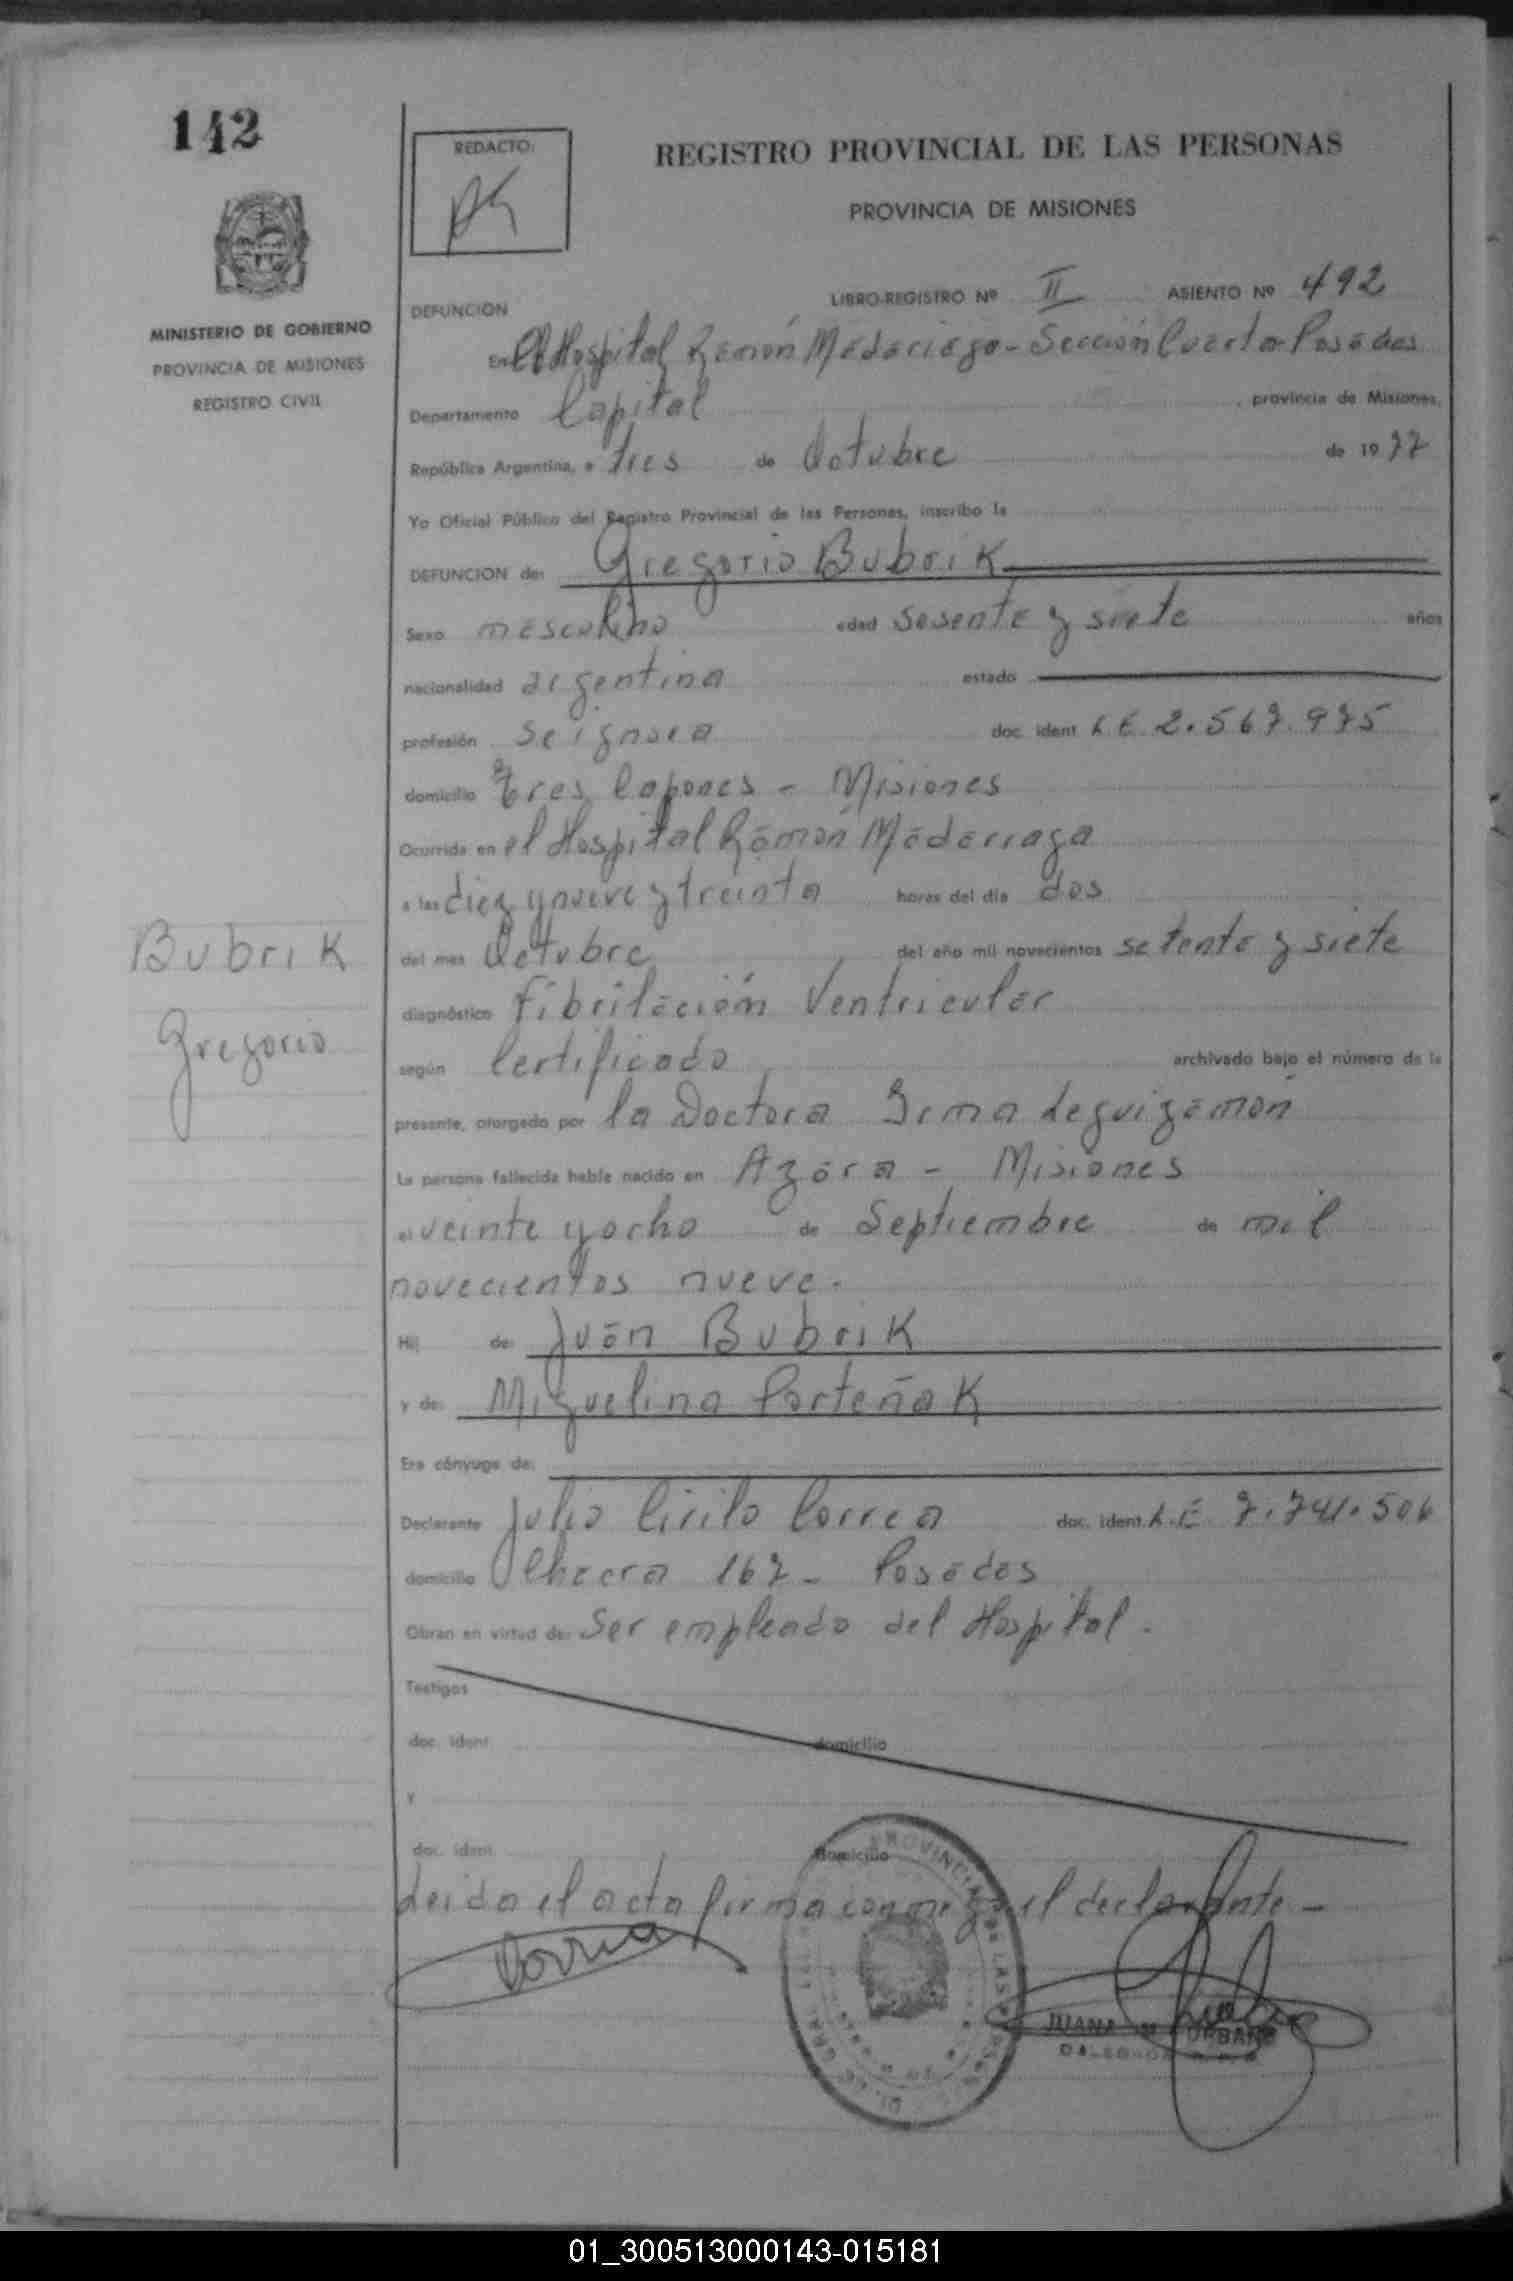 142
REDACTO:
REGISTRO PROVINCIAL DE LAS PERSONAS
PROVINCIA DE MISIONES
MINISTERIO DE GOBIERNO
PROVINCIA DE MISIONES
REGISTRO CIVIL
LIBRO-REGISTRO Nº II ASIENTO Nº 492
DEFUNCION
En El Hospital Ramón Madariaga - Sección Cuarta - Posadas
Departamento Capital , provincia de Misiones,
República Argentina, a tres de Octubre de 1977
Yo Oficial Público del Registro Provincial de las Personas, inscribo la
DEFUNCION de: Gregorio Bubrik
Sexo masculino edad sesenta y siete años
nacionalidad argentina estado
profesión se ignora doc. ident. L.E. 2.567.975
domicilio Tres Capones - Misiones
Ocurrida en el Hospital Ramón Madarriaga
a las diez y nueve y treinta horas del día dos
del mes Octubre del año mil novecientos setenta y siete
diagnóstico Fibrilación Ventricular
según Certificado archivado bajo el número de la
presente, otorgado por la Doctora Irma Leguizamón
La persona fallecida había nacido en Azara - Misiones
el veinte y ocho de Septiembre de mil
novecientos nueve.
Hij de: Juan Bubrik
y de: Miguelina Porteñak
Era cónyuge de:
Declarante Julio Cirilo Correa doc. ident. L.E. 7.741.506
domicilio 167 - Posadas
Obran en virtud de: Ser empleado del Hospital.
Testigos
doc. ident. domicilio
y
doc. ident. domicilio
Leida el acta firma conmigo el declarante -
Bubrik
Gregorio
Correa
JUANA URBAN
01_300513000143-015181